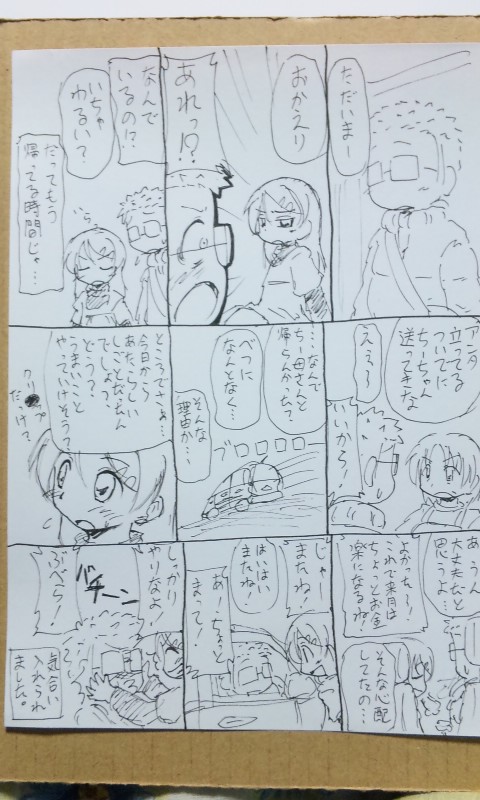 ただいまー
おかえり
あれっ!?
なんで
いるの!?
いちゃ
わるい?
だってもう
帰ってる時間じゃ…
アンタ
立ってる
ついでに
ちーちゃん
送ってきな
ええ〜
いいから!
…なんで
ちー母さんと
帰らんかった?
べつに
なんとなく…
そんな
理由か…
ブロロロロ
ところでさぁ…
今日から
あたらしい
しごとだもん
でしょっ、
どう?
うまいこと
やっていけそう?
だっけ?
あ、うん
大丈夫だと
思うよ…
よかったー!
これで来月は
ちょっとお金
楽になるね!
そんな心配
してたの…
じゃー
またね!
はいはい
またね!
あ!ちょっと
まって!
しっかり
やりなよ!
バチーン
ぶべら!
気合い
入れられ
ました。